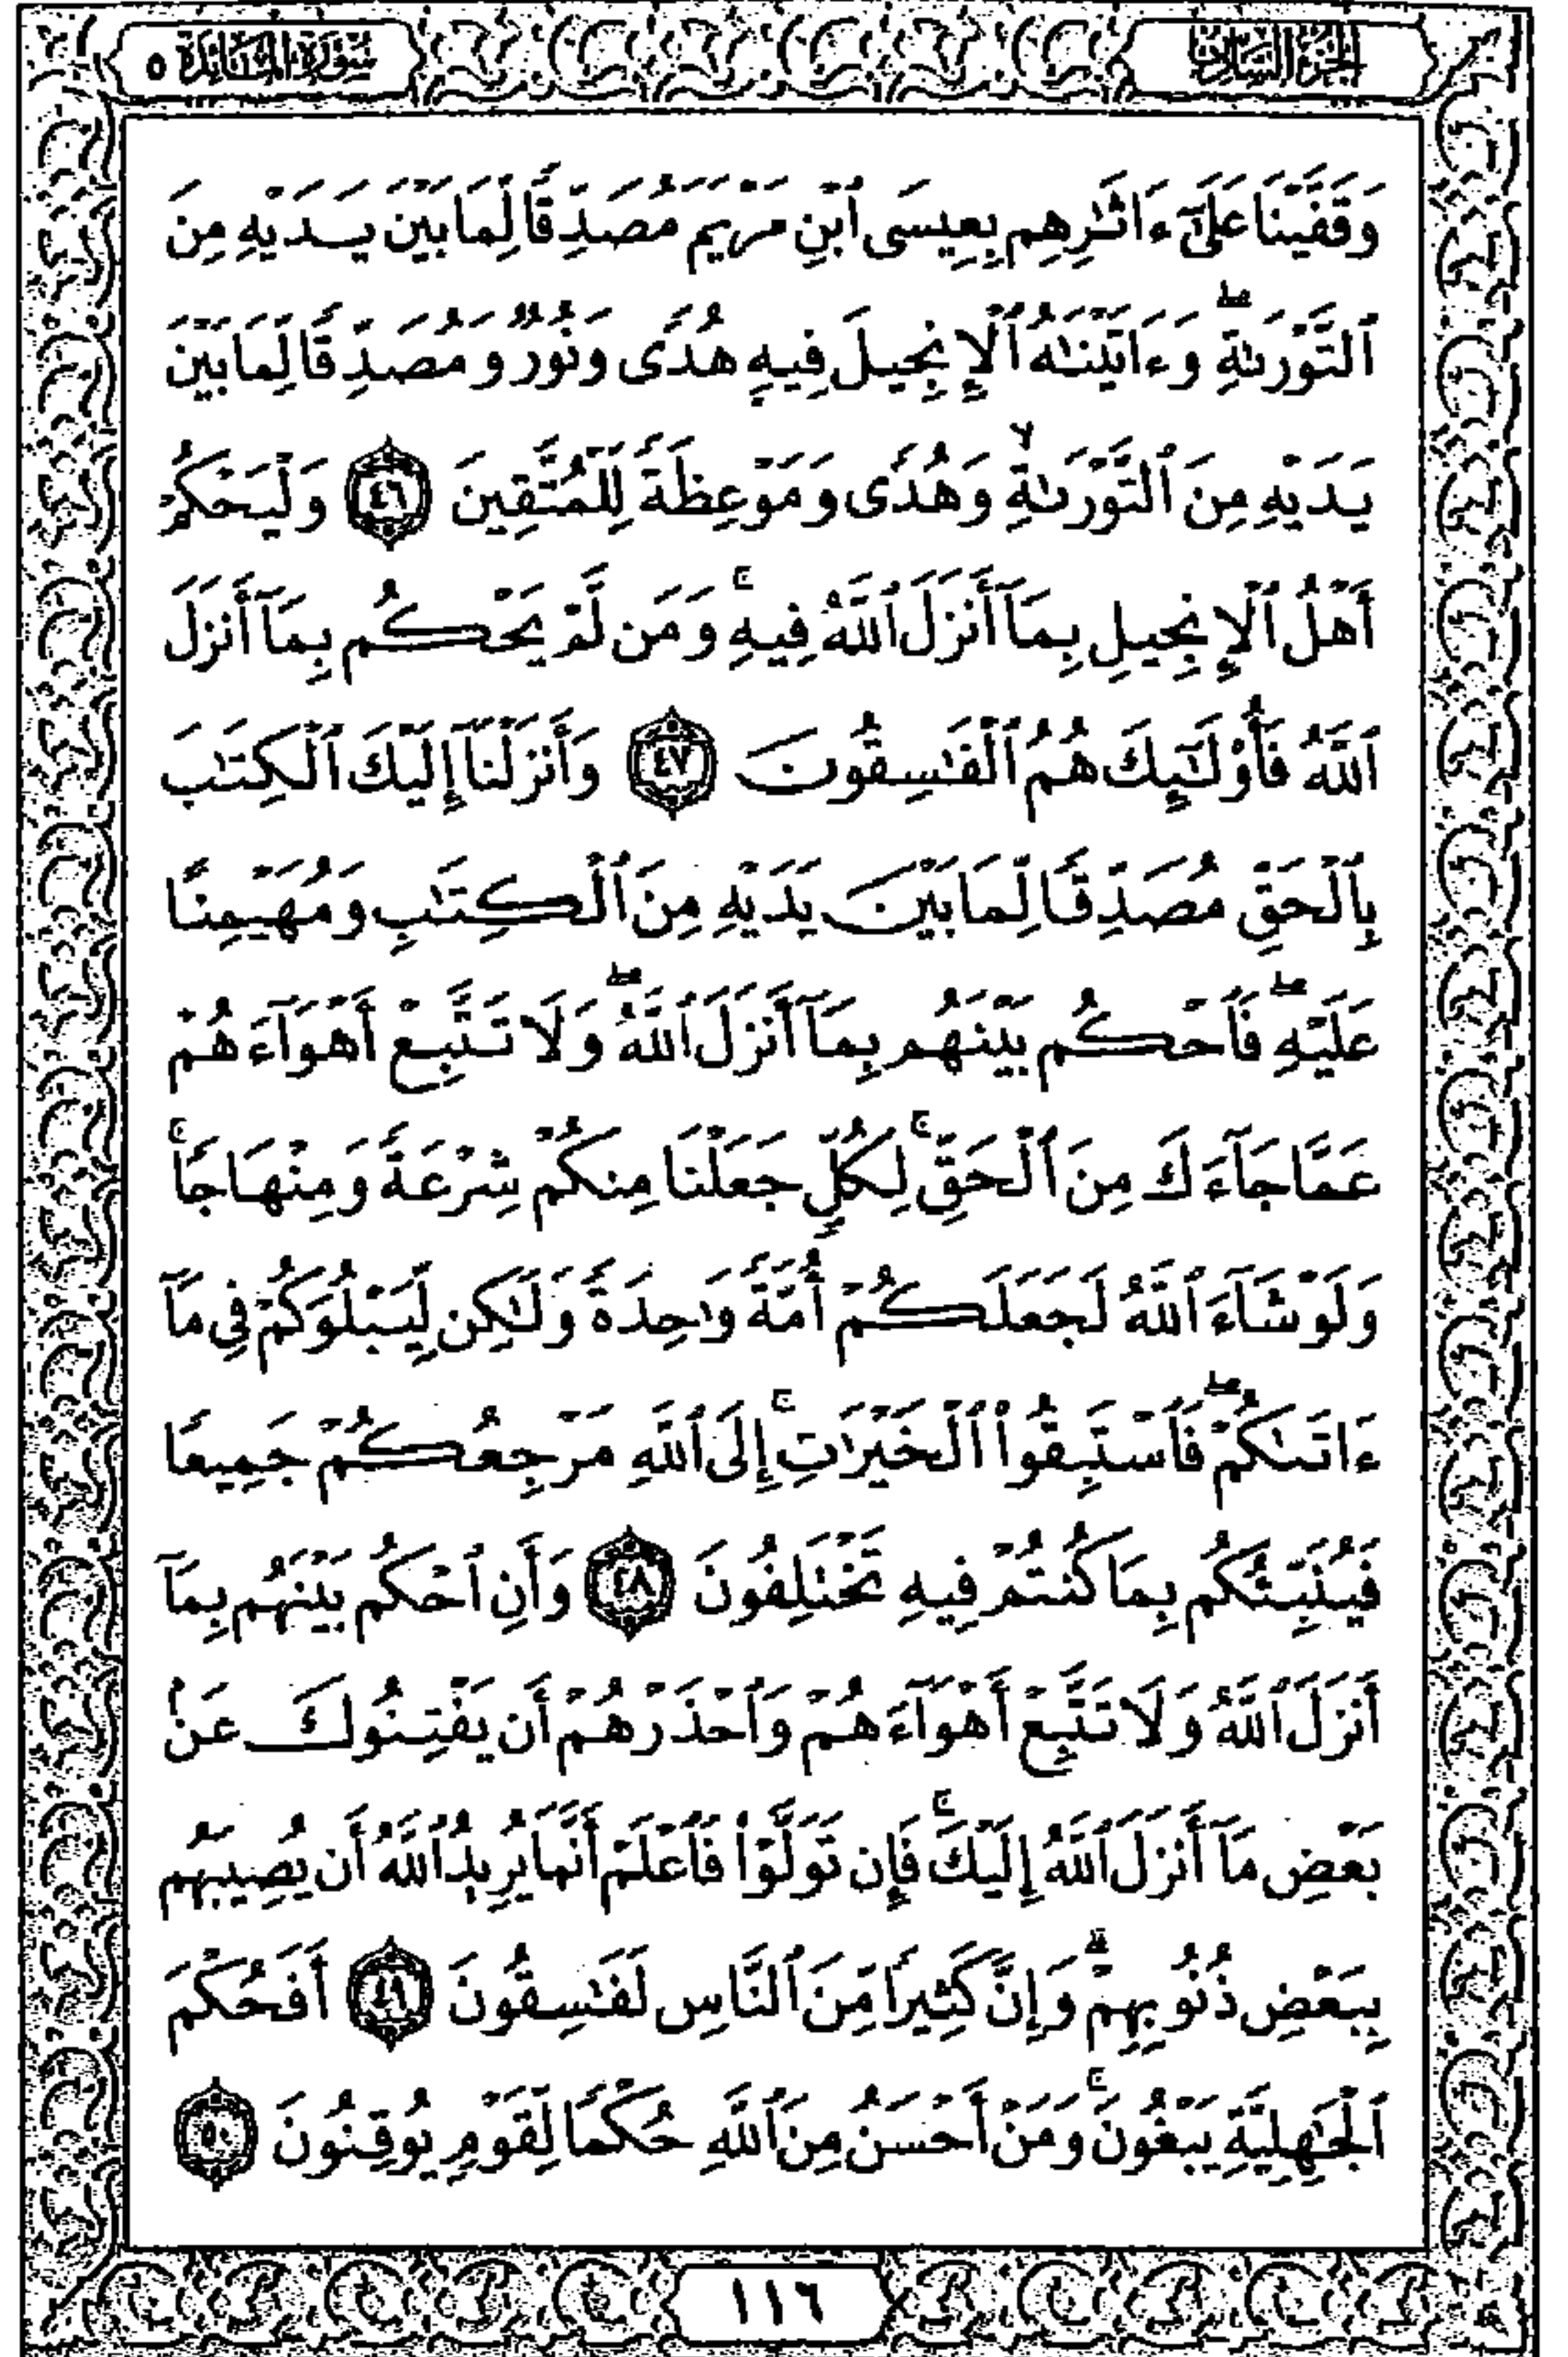 الجزء السادس
سورة المائدة ٥
وَقَفَّيْنَا عَلَىٰٓ ءَاثَٰرِهِم بِعِيسَى ٱبْنِ مَرْيَمَ مُصَدِّقًا لِّمَا بَيْنَ يَدَيْهِ مِنَ
ٱلتَّوْرَىٰةِ ۖ وَءَاتَيْنَٰهُ ٱلْإِنجِيلَ فِيهِ هُدًى وَنُورٌ وَمُصَدِّقًا لِّمَا بَيْنَ
يَدَيْهِ مِنَ ٱلتَّوْرَىٰةِ ۙ وَهُدًى وَمَوْعِظَةً لِّلْمُتَّقِينَ ٤٦ وَلْيَحْكُمْ
أَهْلُ ٱلْإِنجِيلِ بِمَآ أَنزَلَ ٱللَّهُ فِيهِ ۚ وَمَن لَّمْ يَحْكُم بِمَآ أَنزَلَ
ٱللَّهُ فَأُو۟لَٰٓئِكَ هُمُ ٱلْفَٰسِقُونَ ٤٧ وَأَنزَلْنَآ إِلَيْكَ ٱلْكِتَٰبَ
بِٱلْحَقِّ مُصَدِّقًا لِّمَا بَيْنَ يَدَيْهِ مِنَ ٱلْكِتَٰبِ وَمُهَيْمِنًا
عَلَيْهِ ۖ فَٱحْكُم بَيْنَهُم بِمَآ أَنزَلَ ٱللَّهُ ۖ وَلَا تَتَّبِعْ أَهْوَآءَهُمْ
عَمَّا جَآءَكَ مِنَ ٱلْحَقِّ ۚ لِكُلٍّ جَعَلْنَا مِنكُمْ شِرْعَةً وَمِنْهَاجًا ۚ
وَلَوْ شَآءَ ٱللَّهُ لَجَعَلَكُمْ أُمَّةً وَٰحِدَةً وَلَٰكِن لِّيَبْلُوَكُمْ فِى مَآ
ءَاتَىٰكُمْ ۖ فَٱسْتَبِقُوا۟ ٱلْخَيْرَٰتِ ۚ إِلَى ٱللَّهِ مَرْجِعُكُمْ جَمِيعًا
فَيُنَبِّئُكُم بِمَا كُنتُمْ فِيهِ تَخْتَلِفُونَ ٤٨ وَأَنِ ٱحْكُم بَيْنَهُم بِمَآ
أَنزَلَ ٱللَّهُ وَلَا تَتَّبِعْ أَهْوَآءَهُمْ وَٱحْذَرْهُمْ أَن يَفْتِنُوكَ عَنۢ
بَعْضِ مَآ أَنزَلَ ٱللَّهُ إِلَيْكَ ۖ فَإِن تَوَلَّوْا۟ فَٱعْلَمْ أَنَّمَا يُرِيدُ ٱللَّهُ أَن يُصِيبَهُم
بِبَعْضِ ذُنُوبِهِمْ ۗ وَإِنَّ كَثِيرًا مِّنَ ٱلنَّاسِ لَفَٰسِقُونَ ٤٩ أَفَحُكْمَ
ٱلْجَٰهِلِيَّةِ يَبْغُونَ ۚ وَمَنْ أَحْسَنُ مِنَ ٱللَّهِ حُكْمًا لِّقَوْمٍ يُوقِنُونَ ٥٠
١١٦